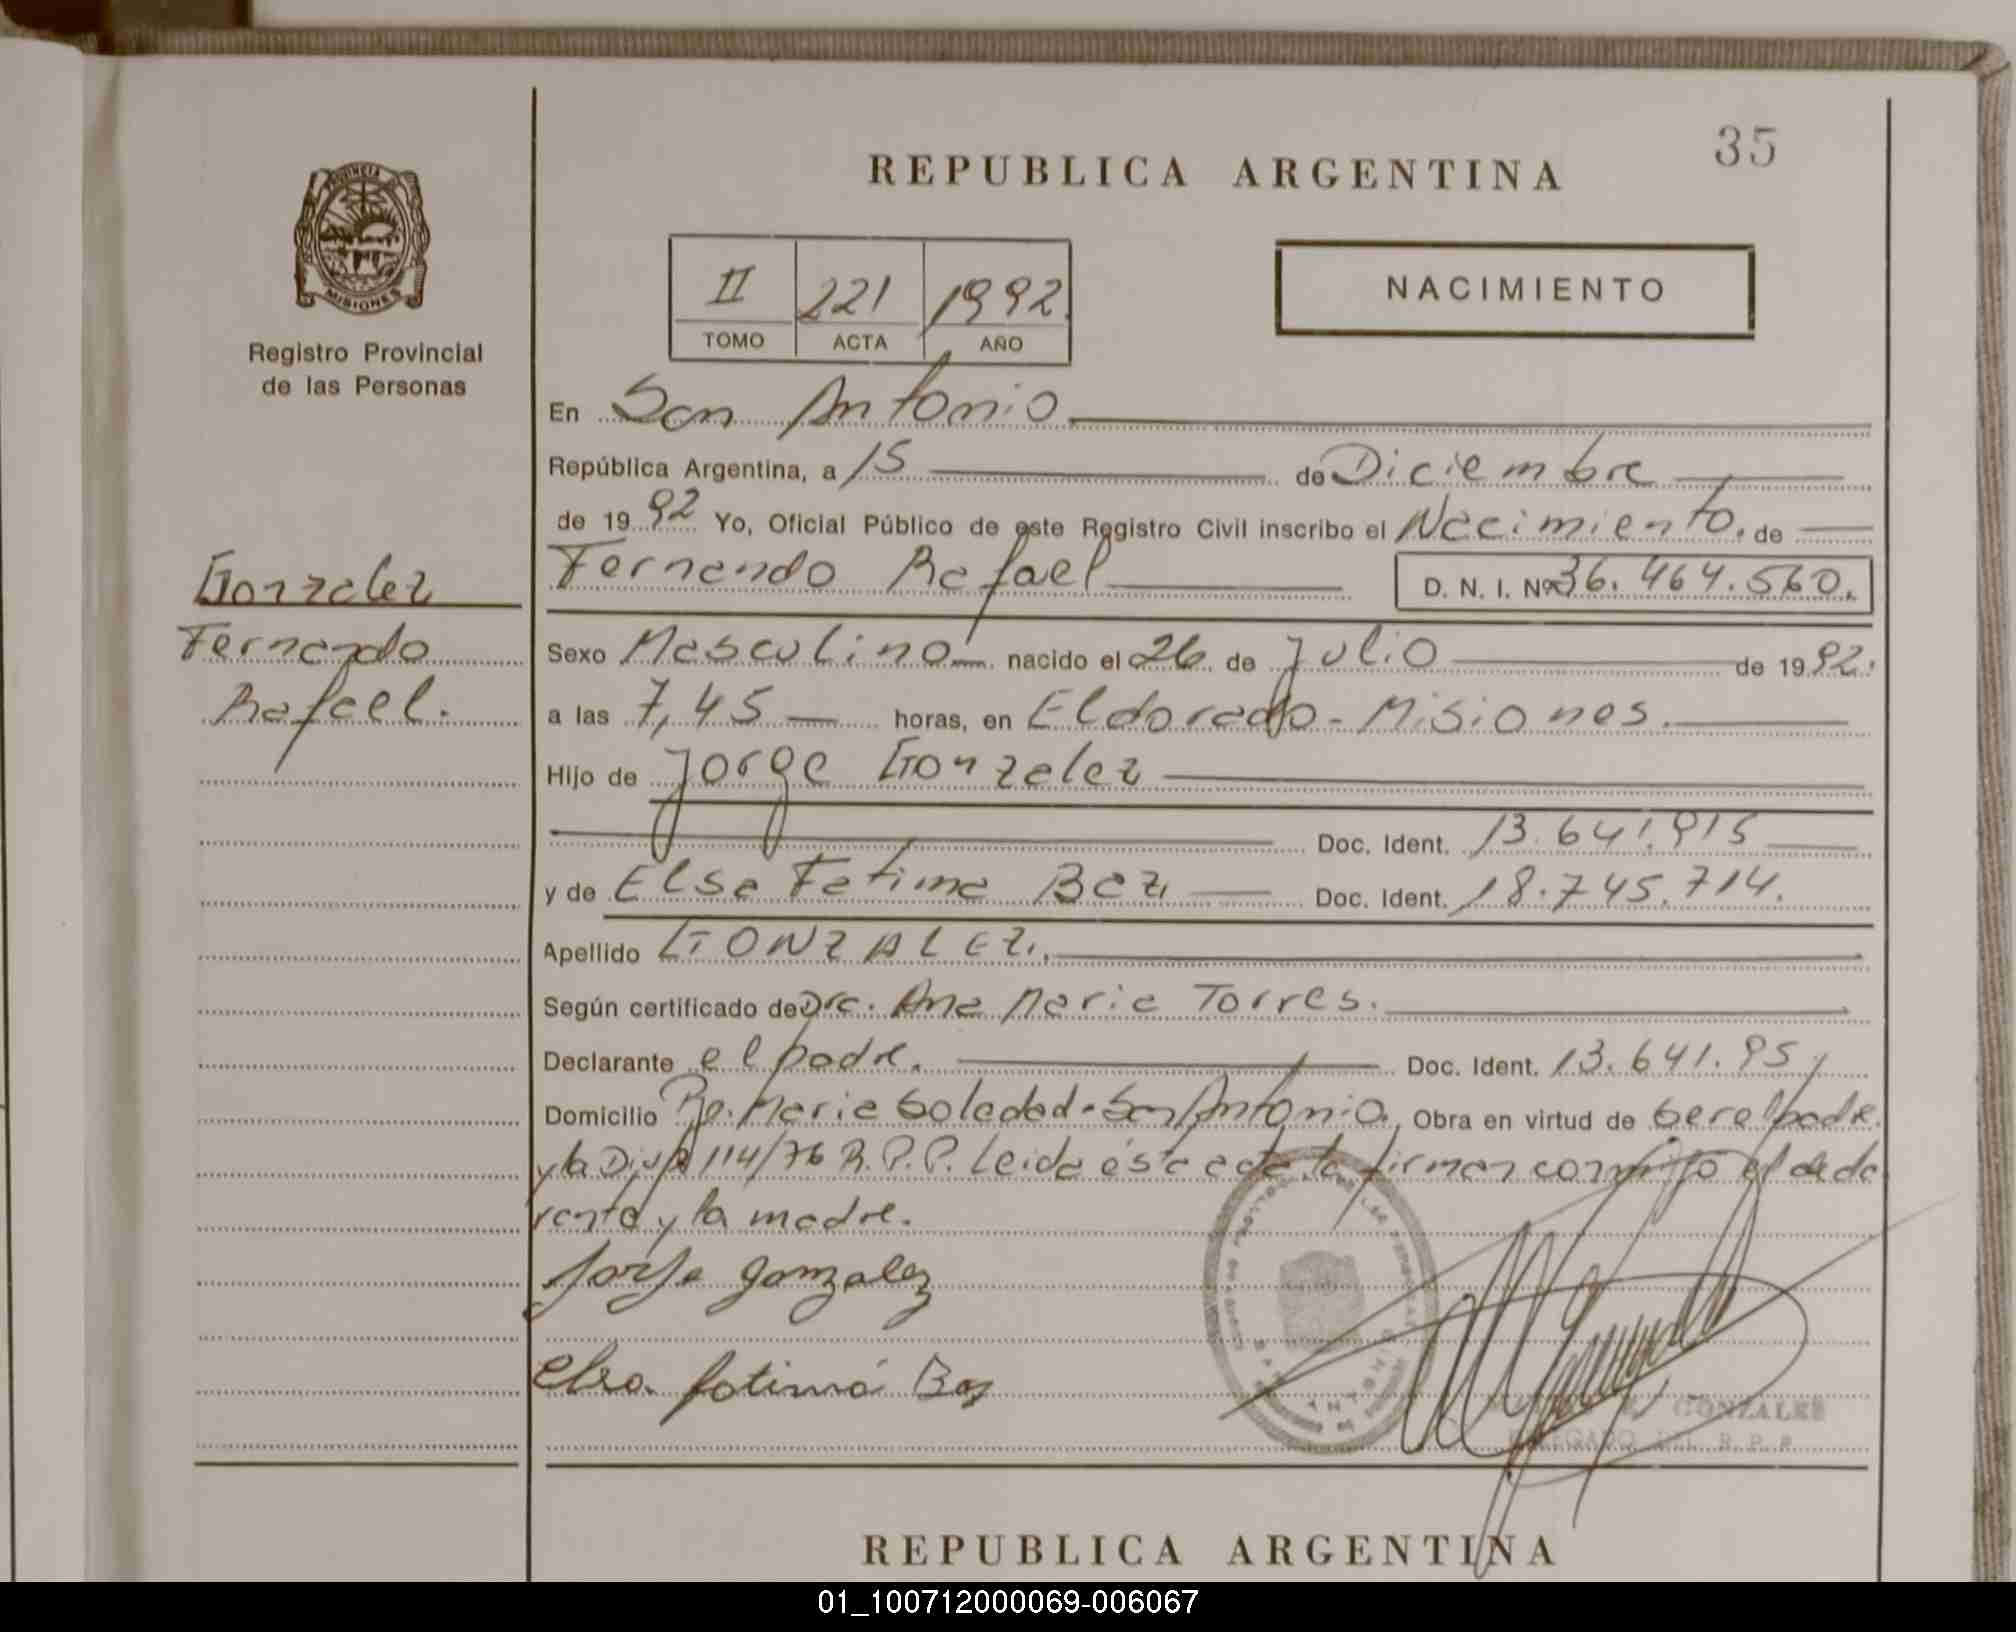 35
REPUBLICA ARGENTINA
PROVINCIA DE
MISIONES
Registro Provincial
de las Personas
II 221 1992
TOMO ACTA AÑO
NACIMIENTO
En San Antonio
República Argentina, a 15 de Diciembre
de 1992 Yo, Oficial Público de este Registro Civil inscribo el Nacimiento, de
Gonzalez
Fernando Rafael D. N. I. Nº 36.464.560.
Fernando
Sexo Masculino nacido el 26 de Julio de 1992.
Rafael.
a las 7,45 horas, en Eldorado - Misiones.
Hijo de Jorge Gonzalez
Doc. Ident. 13.641.915
y de Elsa Fatima Baz, Doc. Ident. 18.745.714.
Apellido GONZALEZ.
Según certificado de Dra. Ana Maria Torres.
Declarante el padre. Doc. Ident. 13.641.95
Domicilio Bo. Maria Soledad - San Antonio. Obra en virtud de ser el padre
y la Disp. 114/76 R.P.P. Leida ésta acta la firman conmigo el decla
rante y la madre.
Jorge gonzalez
elsa fatima Baz
GONZALES
DELEGADO DEL R.P.P.
REPUBLICA ARGENTINA
01_100712000069-006067